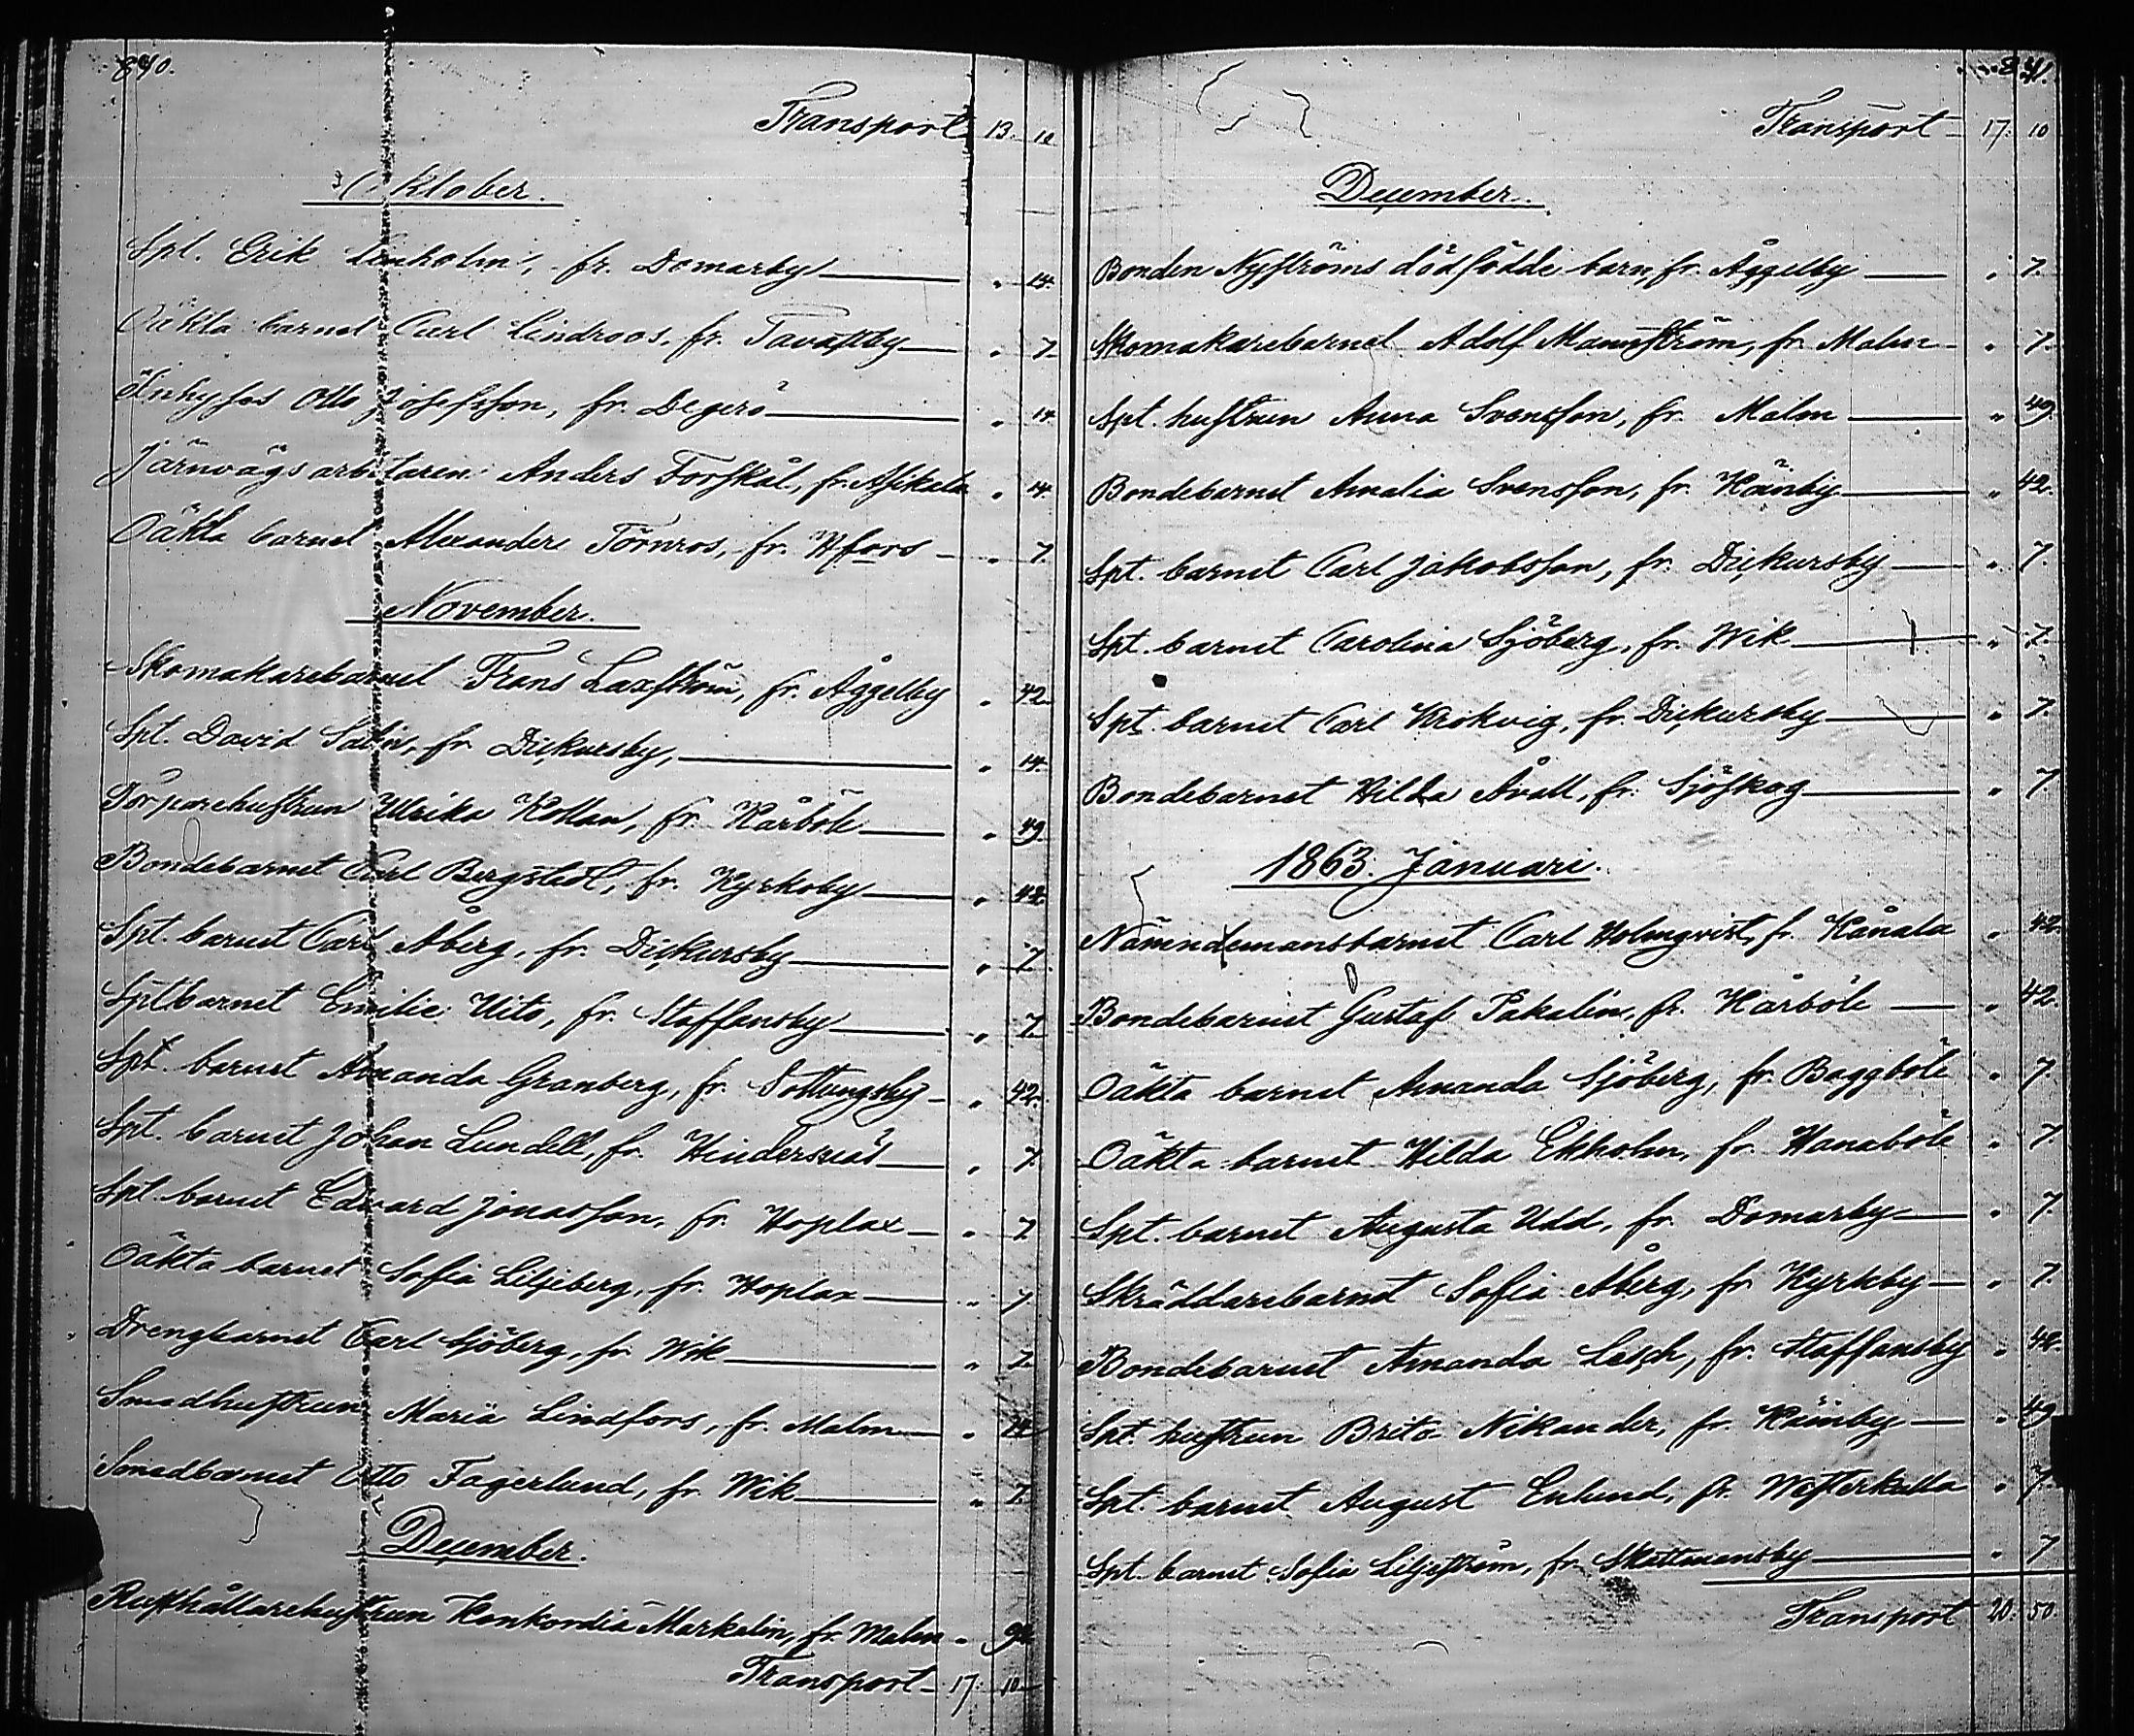 840.
Transport 13. 10
Oktober.
Spl. Erik Lindholm, fr. Domarby " 14.
Oäkta barnet Carl Lindroos, fr. Tavastby " 7.
Inhyses Otto Josefsson, fr. Degerö " 14
Järnvägsarbetaren Anders Forskål, fr. Asikala " 14.
Oäkta barnet Alexander Törnros, fr. Hfors " 7.
November.
Skomakarebarnet Frans Laxström, fr. Åggelby " 42
Spt. David Salin, fr. Dickursby, " 14.
Torparehustrun Ulrika Kollan, fr. Kårböle " 49.
Bondebarnet Carl Bergstedt, fr. Kyrkoby " 42.
Spt. barnet Carl Åberg, fr. Dickursby " 7.
Spt. barnet Emilie Uito, fr. Staffansby " 7.
Spt. barnet Amanda Granberg, fr. Sottungsby " 42.
Spt. barnet Johan Lundell, fr. Hindersnäs " 7.
Spt. barnet Edvard Jonasson, fr. Hoplax " 7
Oäkta barnet Sofia Liljeberg, fr. Hoplax " 7
Drengbarnet Carl Sjöberg, fr. Wik " 7.
Smedhustrun Maria Lindfors, fr. Malm " 14
Smedbarnet Otto Fagerlund, fr. Wik " 7.
December.
Rusthållarehustrun Konkordia Markelin, fr. Malm "
Transport 17. 10
841.
Transport 17. 10
December.
Bonden Nyströms dödfödde barn, fr. Åggelby " 7.
Skomakarebarnet Adolf Mannström, fr. Malm " 7.
Spt. hustrun Anna Svensson, fr. Malm " 49.
Bondebarnet Amalia Svensson, fr. Känby " 42.
Spt. barnet Carl Jakobsson, fr. Dickursby " 7.
Spt. barnet Carolina Sjöberg, fr. Wik " 7.
Spt. barnet Carl Krokvig, fr. Dickursby " 7.
Bondebarnet Hilda Åvall, fr. Sjöskog " 7
1863. Januari.
Nämndemansbarnet Carl Holmqvist, fr. Kånala " 42.
Bondebarnet Gustaf Pakalén, fr. Kårböle " 42.
Oäkta barnet Amanda Sjöberg, fr. Baggböle " 7.
Oäkta barnet Hilda Ekholm, fr. Hanaböle " 7
Spt. barnet Augusta Udd, fr. Domarby " 7.
Skräddarebarnet Sofia Åberg, fr. Kyrkby " 7.
Bondebarnet Amanda Lesch, fr. Staffansby " 42.
Spt. hustrun Brita Nikander, fr. Känby " 49
Spt. barnet August Enlund, fr. Westerkulla " 7.
Spt. barnet Sofia Liljeström, fr. Skattmansby " 7
Transport 20. 50.